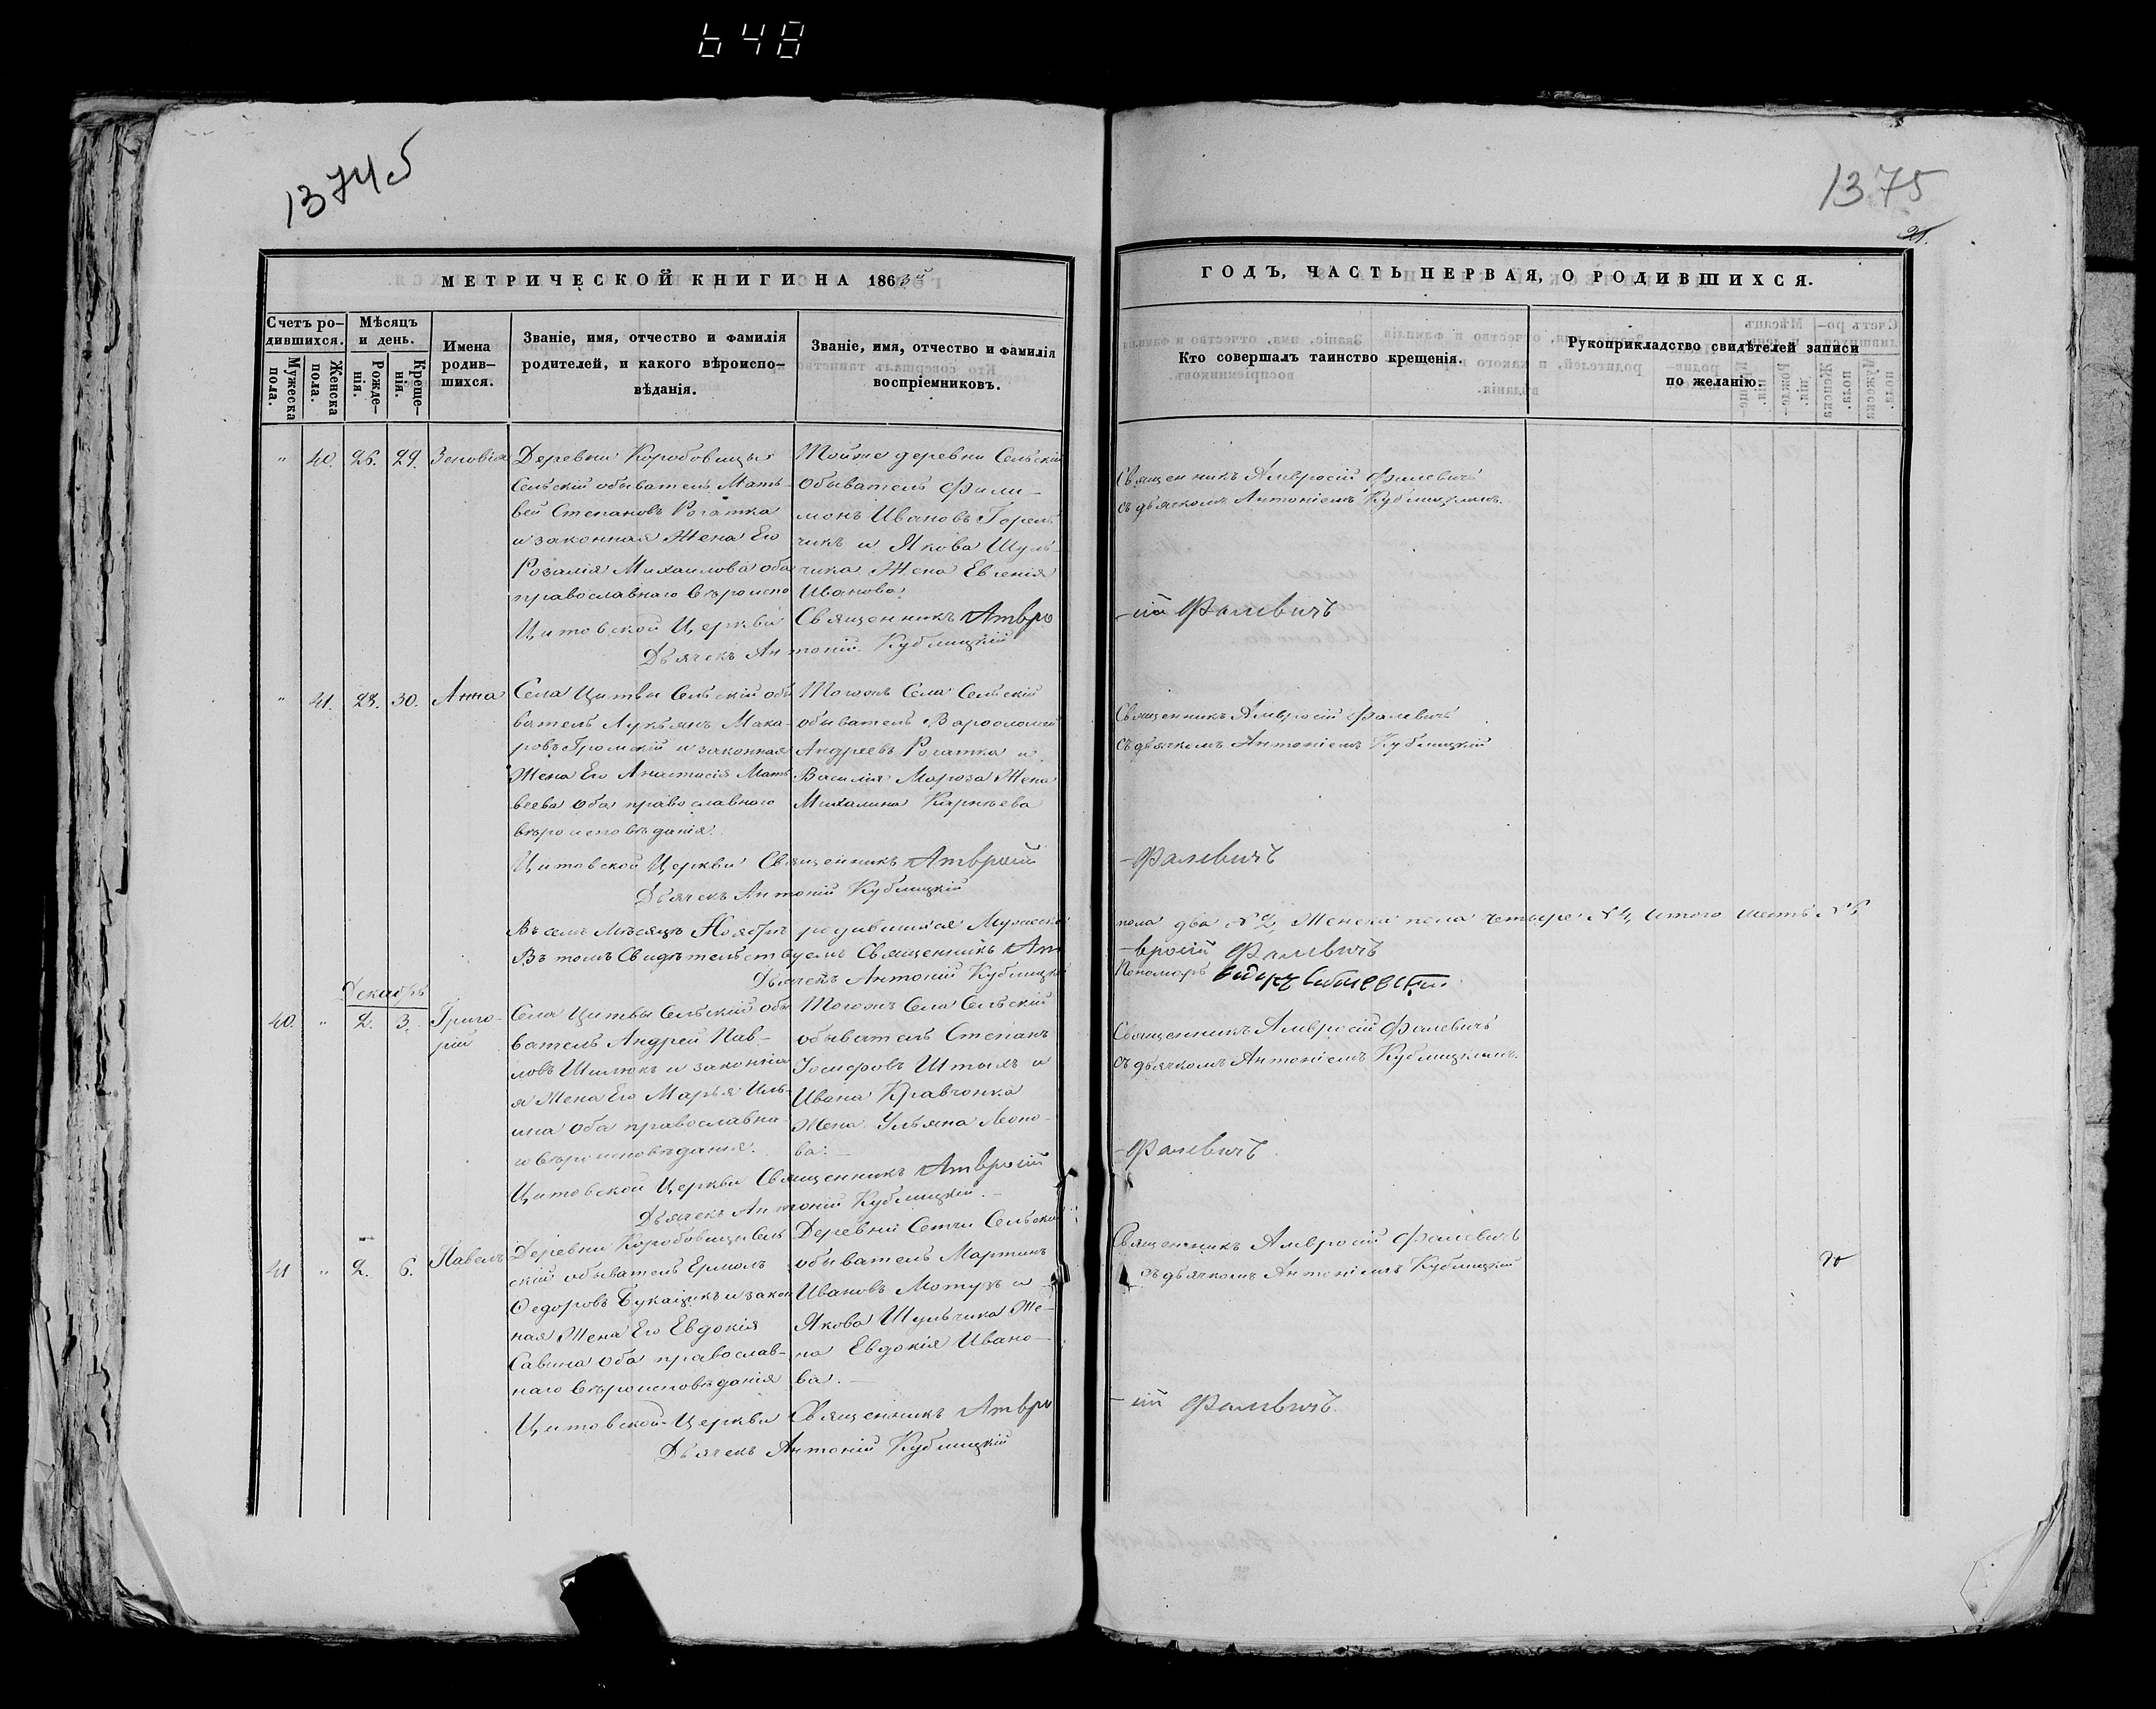 648
1374 б
1375
21.
МЕТРИЧЕСКОЙ КНИГИ НА 1863й
ГОДЪ, ЧАСТЬ ПЕРВАЯ, О РОДИВШИХСЯ.
Счетъ ро-
дившихся.
Мужеска
пола.
Женска
пола.
Мѣсяцъ
и день.
Рожде-
нія.
Креще-
нія.
Имена
родив-
шихся.
Званіе, имя, отчество и фамилія
родителей, и какого вѣроиспо-
вѣданія.
Званіе, имя, отчество и фамилія
воспріемниковъ.
Кто совершалъ таинство крещенія.
Рукоприкладство свидѣтелей записи
по желанію.
" 40. 26. 29. Зеновія
Деревни Коробовицы
Сельскій обыватель Мать-
вей Степановъ Рогатка
и законная Жена Его
Розалія Михаилова оба
православнаго вѣроиспо
Тойже деревни Сельскій
Обыватель Фили-
монъ Ивановъ Горель
чикъ и Якова Шуль-
чика Жена Евгенія
Иванова
Священникъ Амвросій Фалевичъ
съ дьячкомъ Антоніемъ Кублицкимъ.
Цитовской Церкви Священникъ Амвро
-сій Фалевичъ
Дьячекъ Антоній Кублицкій
" 41. 28. 30. Анна
Села Цитвы Сельскій обы
ватель Лукьянъ Мака-
ровъ Громскій и законная
Жена Его Анастасія Мать
веева оба православнаго
вѣроисповѣданія.
Тогожъ Села Сельскій
обыватель Варфоломей
Андреевъ Рогатка и
Василія Мороза Жена
Михалина Карнѣева
Священникъ Амвросій Фалевичъ
съ дьячкомъ Антоніемъ Кублицкій
Цитовской Церкви Священникъ Амвросій
-Фалевичъ
Дьячекъ Антоній Кублицкій
Въ семъ Мѣсяцѣ Ноябрѣ родившихся Мужеска
пола два № 2, Женска пола четыре № 4, итого шесть № 6
Въ томъ Свидѣтельствуемъ Священникъ Ам
-вросій Фалевичъ
Дьячекъ Антоній Кублицкій
Пономарь
Декабрь
40. " 2. 3. Григо-
рій
Села Цитвы Сельскій обы
ватель Андрей Пав-
ловъ Шилюкъ и законна
я Жена Его Марья Иль-
ина оба православна
го вѣроисповѣданія.
Тогожъ Села Сельскій
обыватель Степанъ
Іосифовъ Штыхъ и
Ивана Кравчонка
Жена Ульяна Леоно-
ва.
Священникъ Амвросій Фалевичъ
съ дьячкомъ Антоніемъ Кублицкимъ.
Цитовской Церкви Священникъ Амвросій
-Фалевичъ.
Дьячекъ Антоній Кублицкій.
41 " 2. 6. Павелъ
Деревни Коробовицы Сель
скій обыватель Ермолъ
Федоровъ Букащикъ и закон
ная Жена Его Евдокія
Савина оба православ-
наго вѣроисповѣданія
Деревни Сетчи Сельскій
обыватель Мартинъ
Ивановъ Мотузъ и
Якова Шульчика Же-
на Евдокія Ивано-
ва.
Священникъ Амвросій Фалевичъ
съ дьячкомъ Антоніемъ Кублицкій
Цитовской Церкви Священникъ Амвро
-сій Фалевичъ
Дьячекъ Антоній Кублицкій